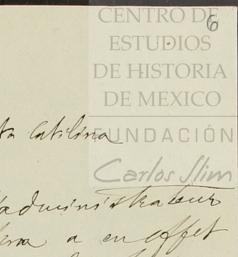 6
CENTRO DE
ESTUDIOS
DE HISTORIA
DE MEXICO
FUNDACIÓN
Carlos Slim
ta Catilina
l'administrateur
a en effet